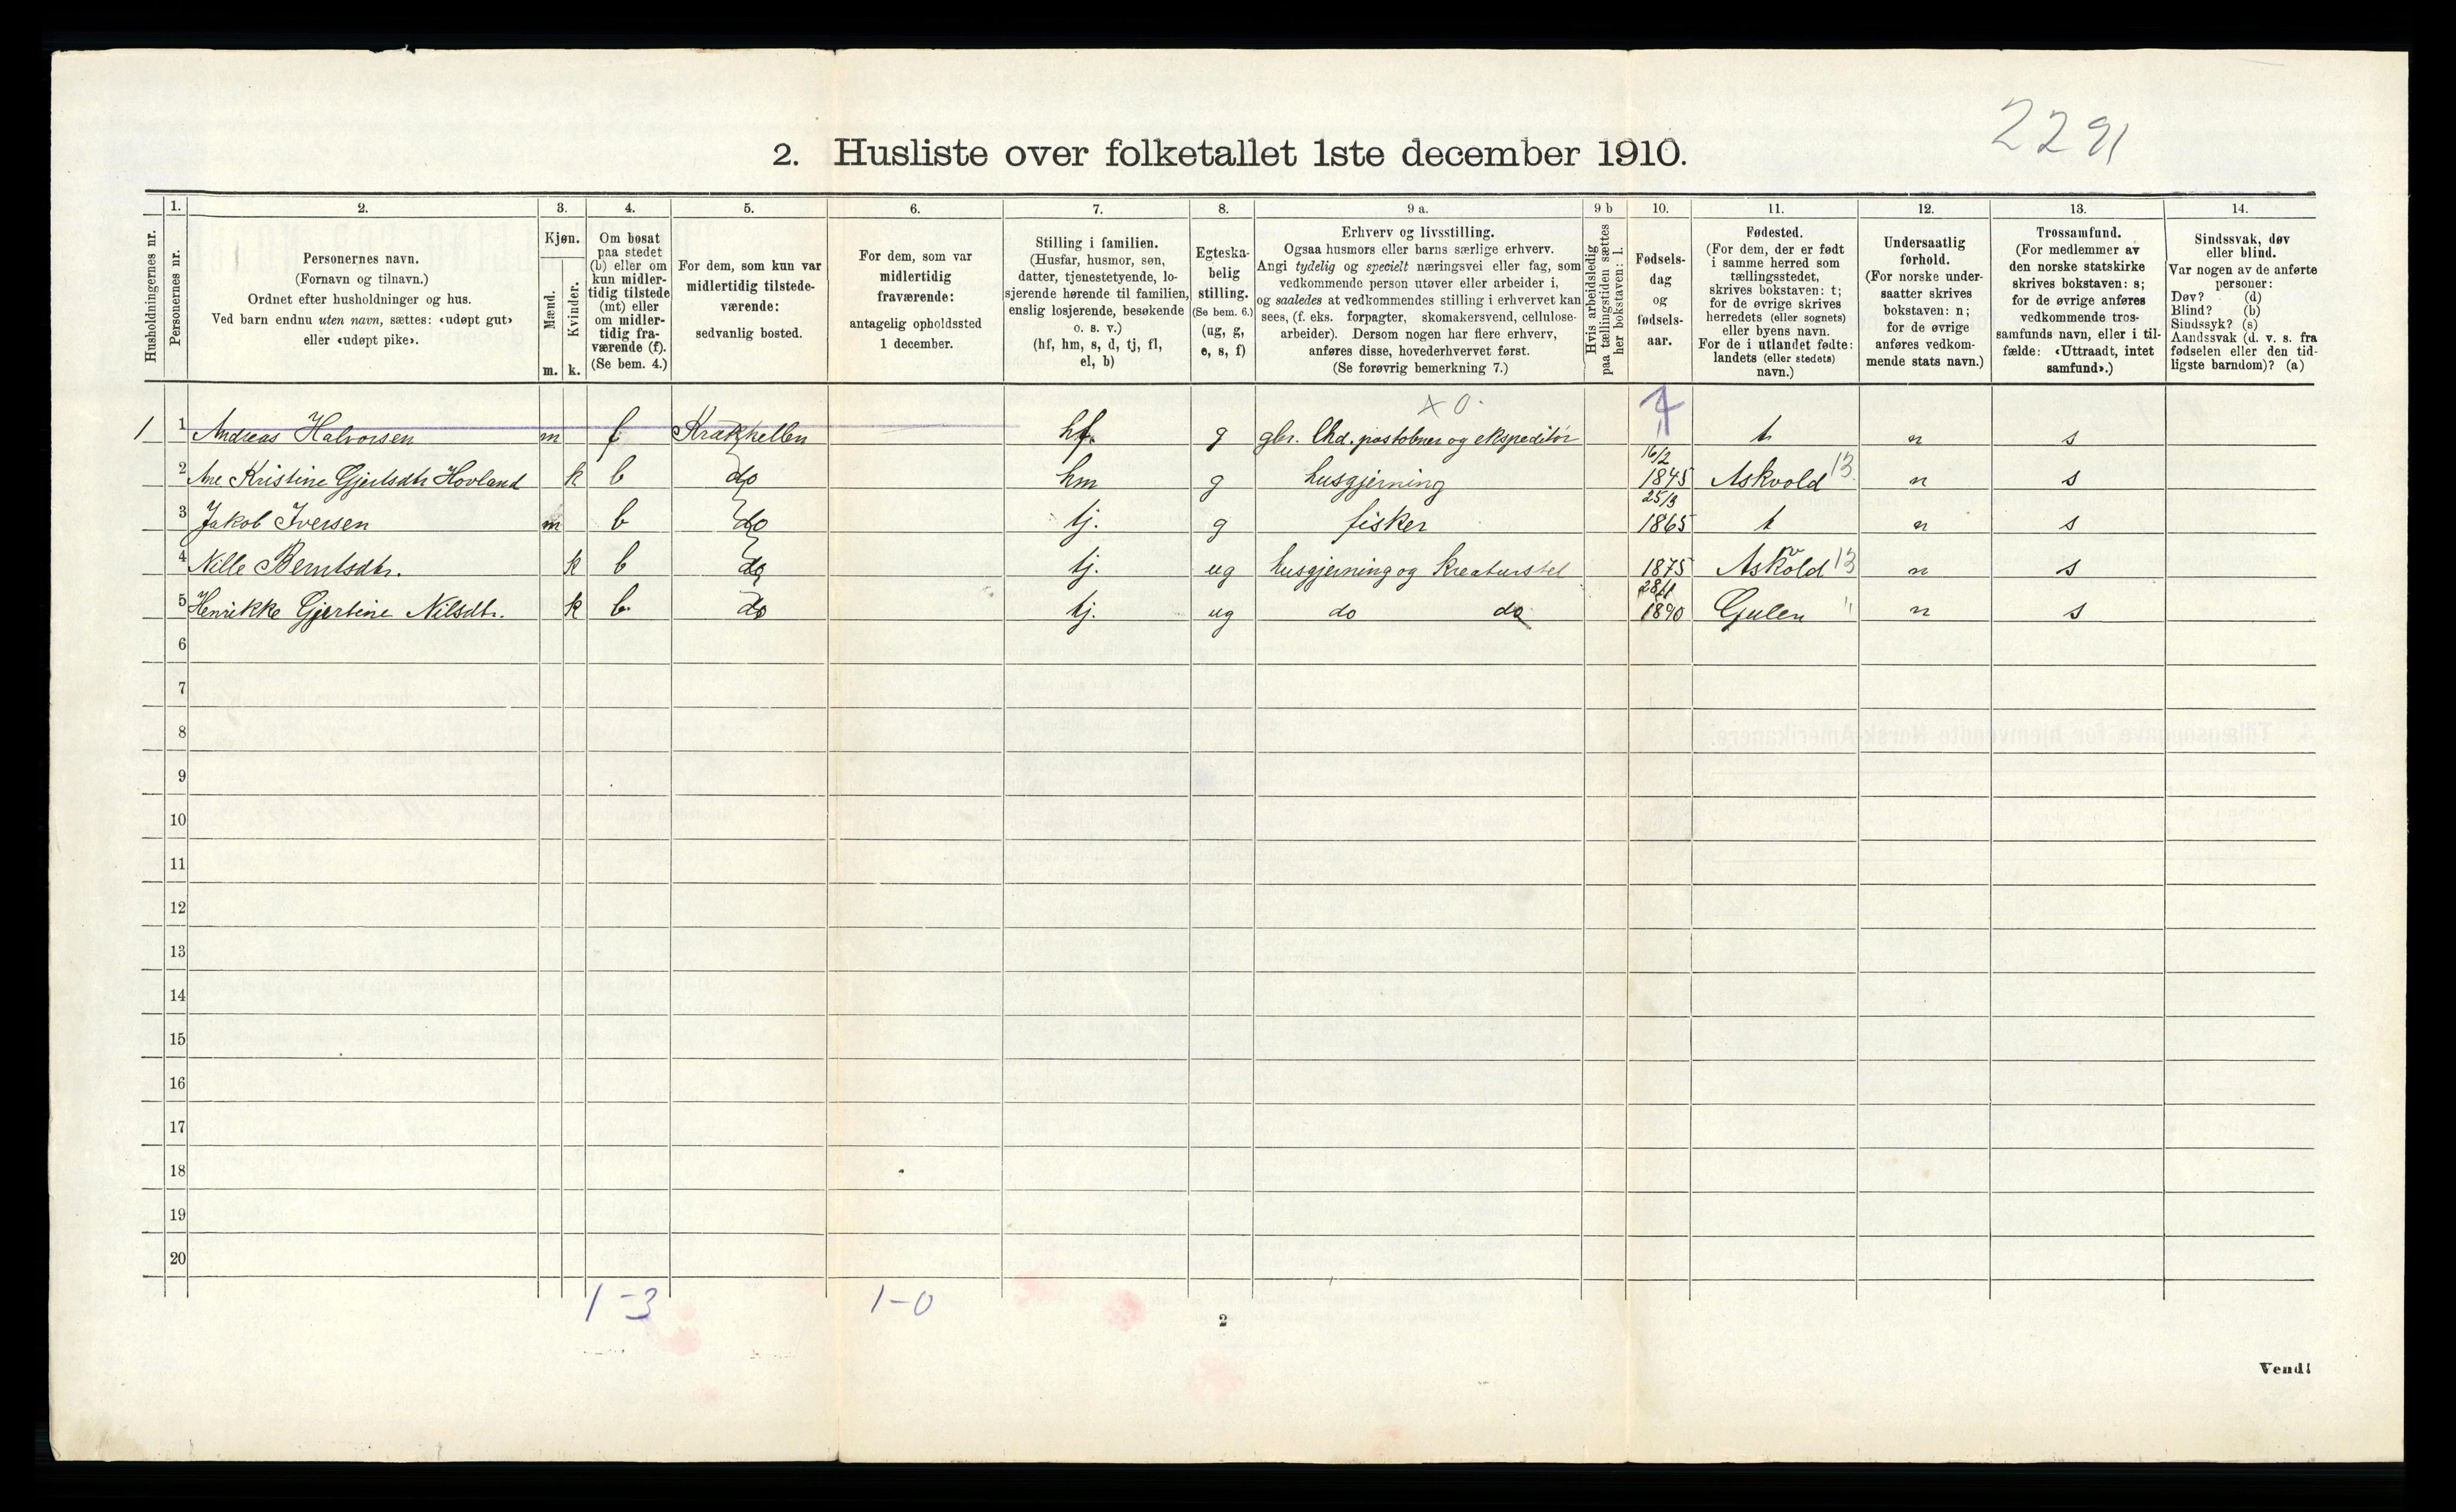 2291
2. Husliste over folketallet 1ste december 1910.
1. 2. 3. 4. 5. 6. 7. 8. 9 a. 9 b 10. 11. 12. 13. 14.
Husholdningernes nr.
Personernes nr.
Personernes navn.
(Fornavn og tilnavn.)
Ordnet efter husholdninger og hus.
Ved barn endnu uten navn, sættes: «udøpt gut»
eller «udøpt pike».
Kjøn.
Mænd.
Kvinder.
m. k.
Om bosat
paa stedet
(b) eller om
kun midler-
tidig tilstede
(mt) eller
om midler-
tidig fra-
værende (f).
(Se bem. 4.)
For dem, som kun var
midlertidig tilstede-
værende:
sedvanlig bosted.
For dem, som var
midlertidig
fraværende:
antagelig opholdssted
1 december.
Stilling i familien.
(Husfar, husmor, søn,
datter, tjenestetyende, lo-
sjerende hørende til familien,
enslig losjerende, besøkende
o. s. v.)
(hf, hm, s, d, tj, fl,
el, b)
Egteska-
belig
stilling.
(Se bem. 6.)
(ug, g,
e, s, f)
Erhverv og livsstilling.
Ogsaa husmors eller barns særlige erhverv.
Angi tydelig og specielt næringsvei eller fag, som
vedkommende person utøver eller arbeider i,
og saaledes at vedkommendes stilling i erhvervet kan
sees, (f. eks. forpagter, skomakersvend, cellulose-
arbeider). Dersom nogen har flere erhverv,
anføres disse, hovederhvervet først.
(Se forøvrig bemerkning 7.)
Hvis arbeidsledig
paa tællingstiden sættes
her bokstaven: l.
Fødsels-
dag
og
fødsels-
aar.
Fødested.
(For dem, der er født
i samme herred som
tællingsstedet,
skrives bokstaven: t;
for de øvrige skrives
herredets (eller sognets)
eller byens navn.
For de i utlandet fødte:
landets (eller stedets)
navn.)
Undersaatlig
forhold.
(For norske under-
saatter skrives
bokstaven: n;
for de øvrige
anføres vedkom-
mende stats navn.)
Trossamfund.
(For medlemmer av
den norske statskirke
skrives bokstaven: s;
for de øvrige anføres
vedkommende tros-
samfunds navn, eller i til-
fælde: «Uttraadt, intet
samfund».)
Sindssvak, døv
eller blind.
Var nogen av de anførte
personer:
Døv? (d)
Blind? (b)
Sindssyk? (s)
Aandssvak (d. v. s. fra
fødselen eller den tid-
ligste barndom)? (a)
x 0.
1 1 Andreas Halvorsen m f Krakhellen hf. g gbr. lhd. postobner og ekspeditör t n s
2 Ane Kristine Gjertsdtr Hovland k b do hm g husgjerning 16/2 1845 Askvold 13 n s
3 Jakob Iversen m b do tj. g fisker 25/3 1865 t n s
4 Nille Berntsdtr. k b do tj. ug husgjerning og kreaturstel 1875 Askvold 13 n s
5 Henrikke Gjertine Nilsdtr. k b do tj. ug do do 28/1 1890 Gulen " n s
6
7
8
9
10
11
12
13
14
15
16
17
18
19
20
1-3 1-0
2
Vend!